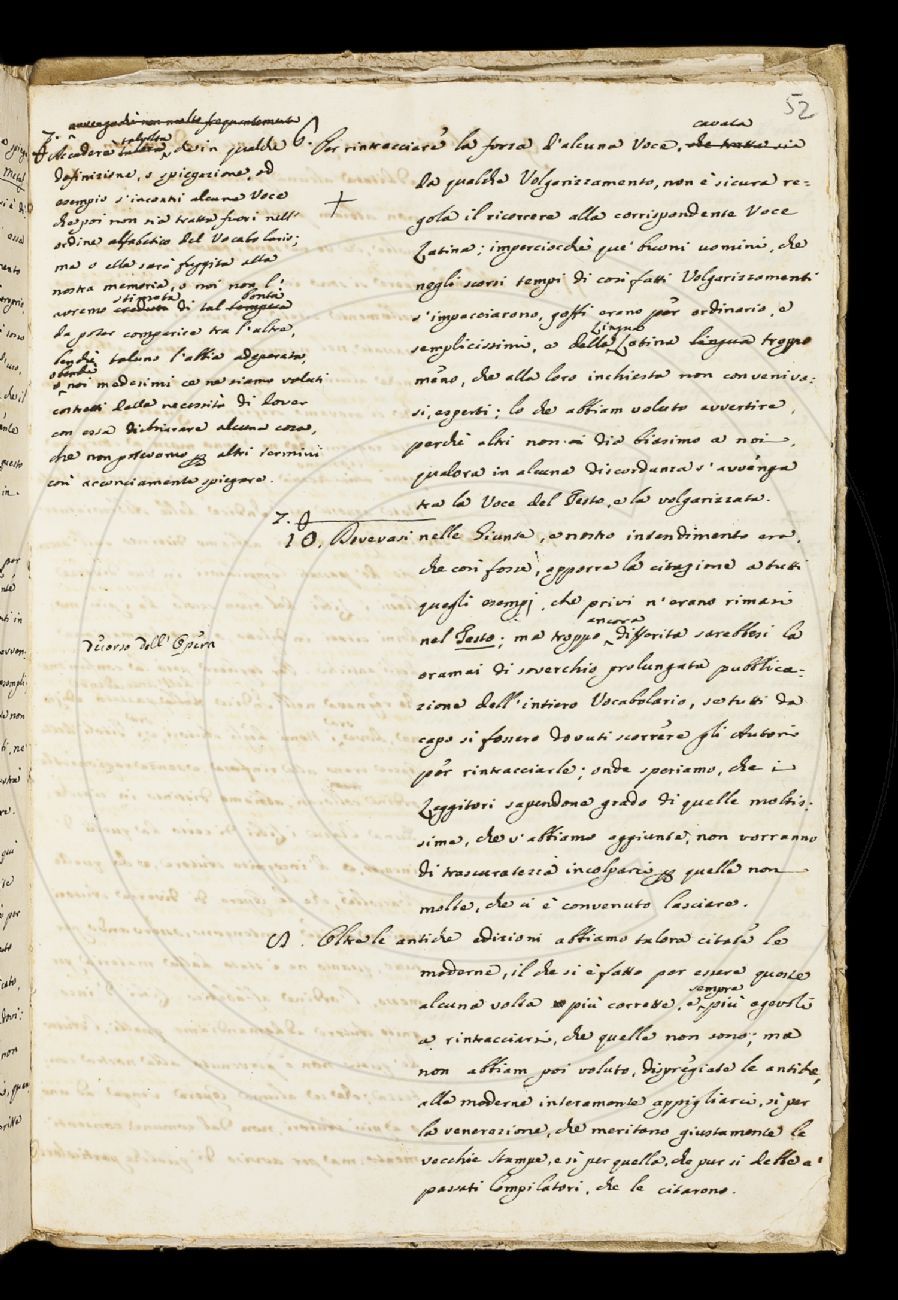 52
avvegnachè non molto frequentemente
7. Accaderà talora talvolta, che in qualche
definizione, o spiegazione, od
esempio s'incontri alcuna Voce
che poi non sia tratta fuori nell'
ordine alfabetico del Vocabolario;
ma o ella sarà fuggita alla
nostra memoria, o noi non l'
stimata bontà
avremo creduta di tal
da poter comparire tra l'altre,
benchè taluno l'abbia adoperata,
o benchè
o noi medesimi ce ne siamo veduti
costretti dalla necessità di dover
con essa dichiarare alcuna cosa,
che non potevamo altri termini
così acconciamente spiegare.
cavata
6. Per rintracciare la forza d'alcuna Voce, che tratta sia
da qualche Volgarizzamento, non è sicura re=
gola il ricorrere alla corrispondente Voce
Latina; imperciocchè que' buoni uomini, che
negli scorsi tempi di così fatti Volgarizzamenti
s'impacciarono, goffi erano per ordinario, e
Lingua
semplicissimi, e della Latina lingua troppo
meno, che alla loro inchiesta non conveniva=
si, esperti; lo che abbiam voluto avvertire,
perchè altri non ci dia biasimo a noi,
qualora in alcuna discordanza s'avvenga
tra la Voce del Testo, e la volgarizzata.
7.
10. Dovevasi nelle Giunte, e nostro intendimento era,
che così fosse, apporre la citazione a tutti
quegli esempj, che privi n'erano rimasi
ancora
nel Testo; ma troppo differita sarebbesi la
oramai di soverchio prolungata pubblica=
zione dell'intiero Vocabolario, se tutti da
capo si fossero dovuti scorrere gli Autori
per rintracciarle; onde speriamo, che i
Leggitori sapendone grado di quelle moltis=
sime, che v'abbiamo aggiunte, non vorranno
di trascuratezza incolparci quelle non
molte, che ci è convenuto lasciare.
dell'Opera
Oltre le antiche edizioni abbiamo talora citate le
moderne, il che si è fatto per essere queste
sempre
alcuna volta più corrette, e più agevoli
a rintracciarsi, che quelle non sono; ma
non abbiam poi voluto, dispregiate le antiche,
alle moderne interamente appigliarci, sì per
la venerazione, che meritano giustamente le
vecchie stampe, e sì per quella, che pur si dette a'
passati Compilatori, che le citarono.